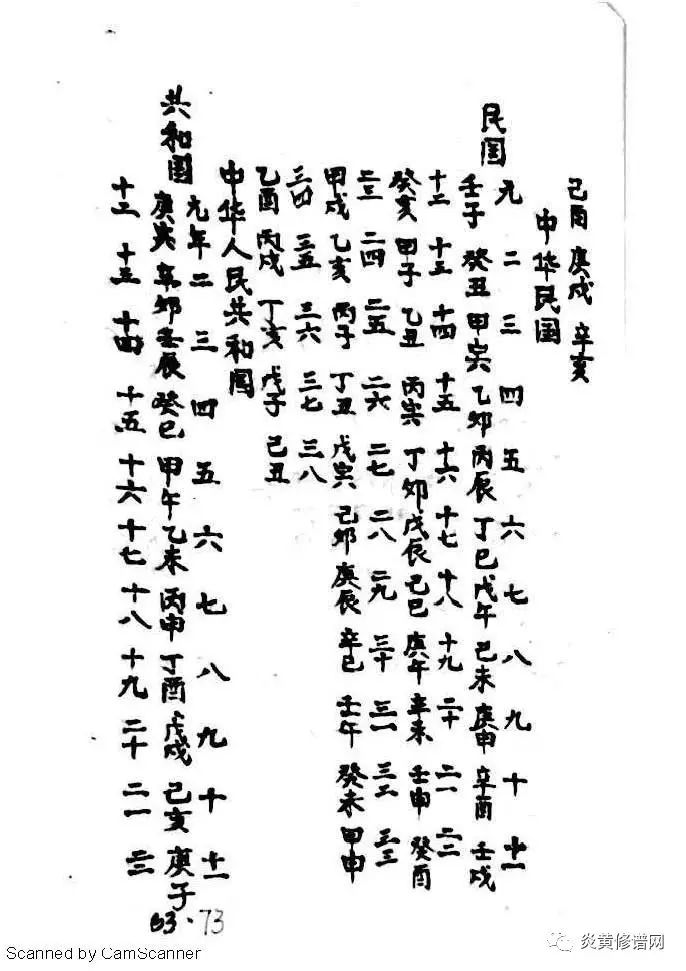 己酉 庚戍 辛亥
中华民国
民国 元 二 三 四 五 六 七 八 九 十 十一
壬子 癸丑 甲寅 乙卯 丙辰 丁巳 戊午 己未 庚申 辛酉 壬戍
十二 十三 十四 十五 十六 十七 十八 十九 二十 二一 二二
癸亥 甲子 乙丑 丙寅 丁卯 戊辰 己巳 庚午 辛未 壬申 癸酉
二三 二四 二五 二六 二七 二八 二九 三十 三一 三二 三三
甲戍 乙亥 丙子 丁丑 戊寅 己卯 庚辰 辛巳 壬午 癸未 甲申
三四 三五 三六 三七 三八
乙酉 丙戍 丁亥 戊子 己丑
中华人民共和国
共和国 元年 二 三 四 五 六 七 八 九 十 十一
庚寅 辛卯 壬辰 癸巳 甲午 乙未 丙申 丁酉 戊戍 己亥 庚子
十二 十三 十四 十五 十六 十七 十八 十九 二十 二一 二二
63·73
Scanned by CamScanner
炎黄修谱网